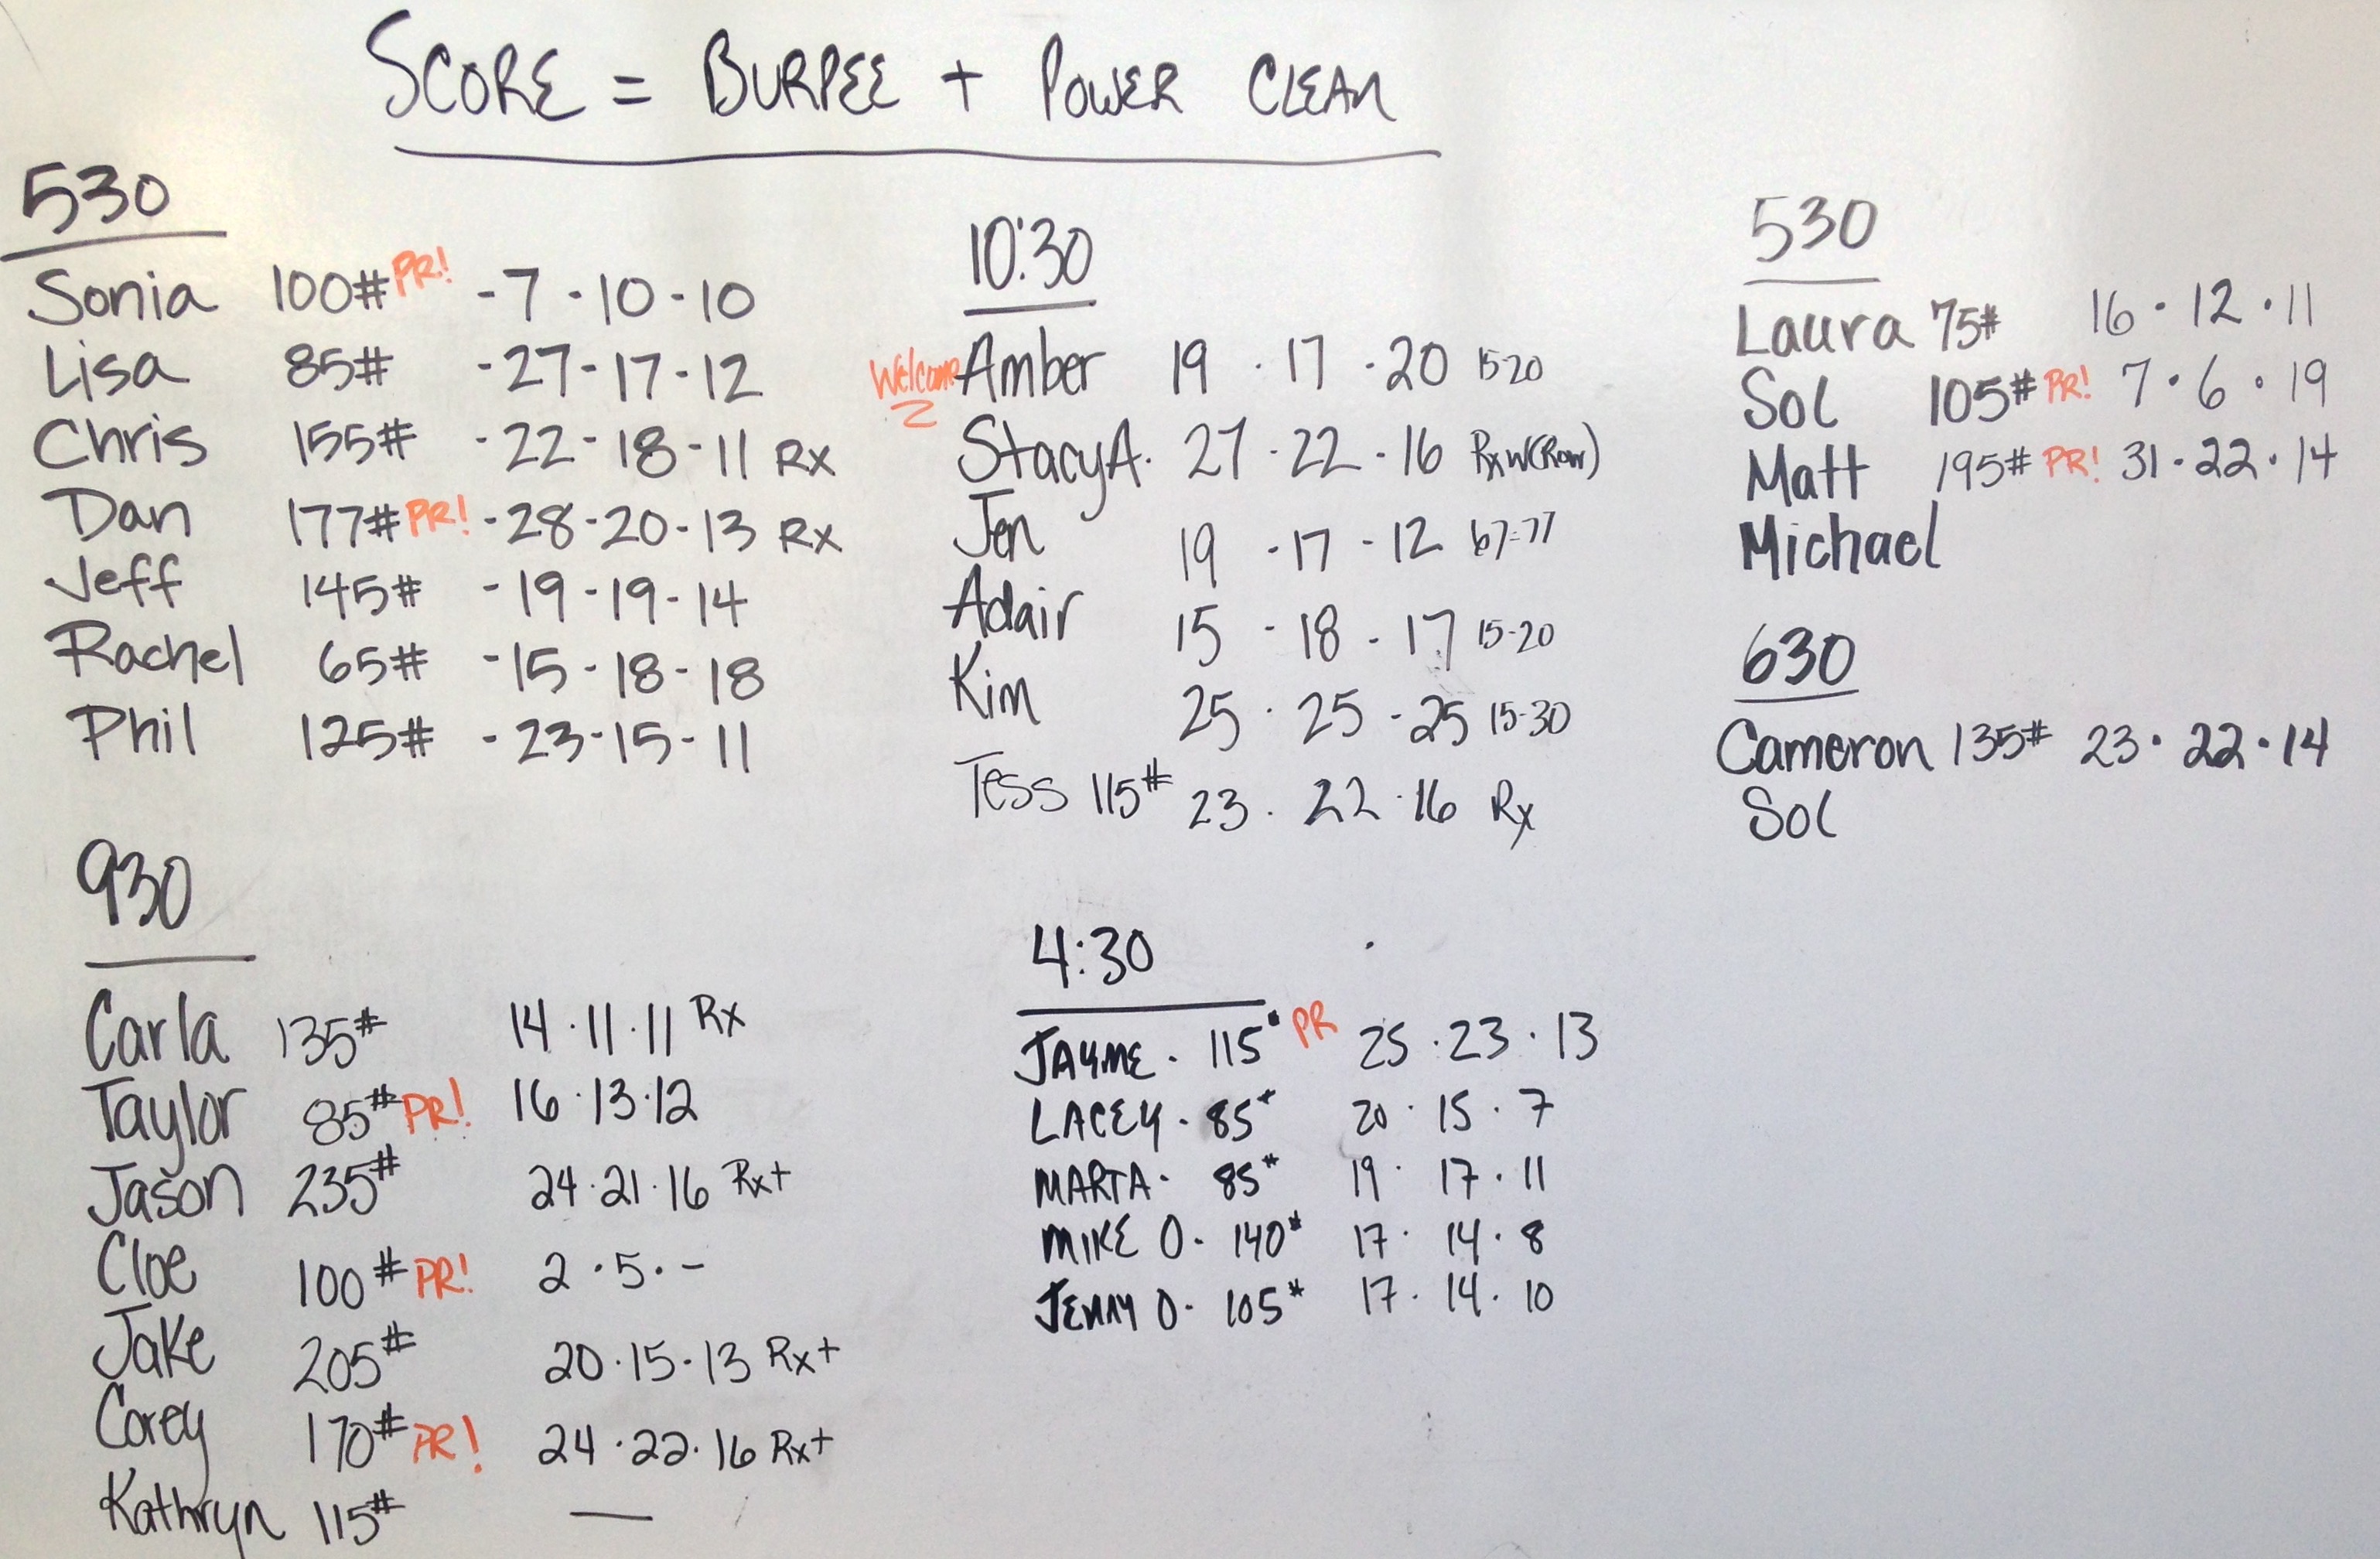 SCORE = BURPEE + POWER CLEAN
530
Sonia 100# PR! - 7 - 10 - 10
Lisa 85# - 27 - 17 - 12
Chris 155# - 22 - 18 - 11 Rx
Dan 177# PR! - 28 - 20 - 13 Rx
Jeff 145# - 19 - 19 - 14
Rachel 65# - 15 - 18 - 18
Phil 125# - 23 - 15 - 11
930
Carla 135# 14 · 11 · 11 Rx
Taylor 85# PR! 16 · 13 · 12
Jason 235# 24 · 21 · 16 Rx+
Cloe 100# PR! 2 · 5 · -
Jake 205# 20 · 15 · 13 Rx+
Corey 170# PR! 24 · 22 · 16 Rx+
Kathryn 115# —
10:30
Welcome Amber 19 · 17 · 20 15-20
Stacy A. 27 · 22 · 16 Rx w(Row)
Jen 19 · 17 · 12 67-77
Adair 15 · 18 · 17 15-20
Kim 25 · 25 · 25 15-30
Tess 115# 23 · 22 · 16 Rx
4:30
JAYME · 115# PR 25 · 23 · 13
LACEY · 85# 20 · 15 · 7
MARTA · 85# 19 · 17 · 11
MIKE O · 140# 17 · 14 · 8
JENNY O · 105# 17 · 14 · 10
530
Laura 75# 16 · 12 · 11
Sol 105# PR! 7 · 6 · 19
Matt 195# PR! 31 · 22 · 14
Michael
630
Cameron 135# 23 · 22 · 14
Sol